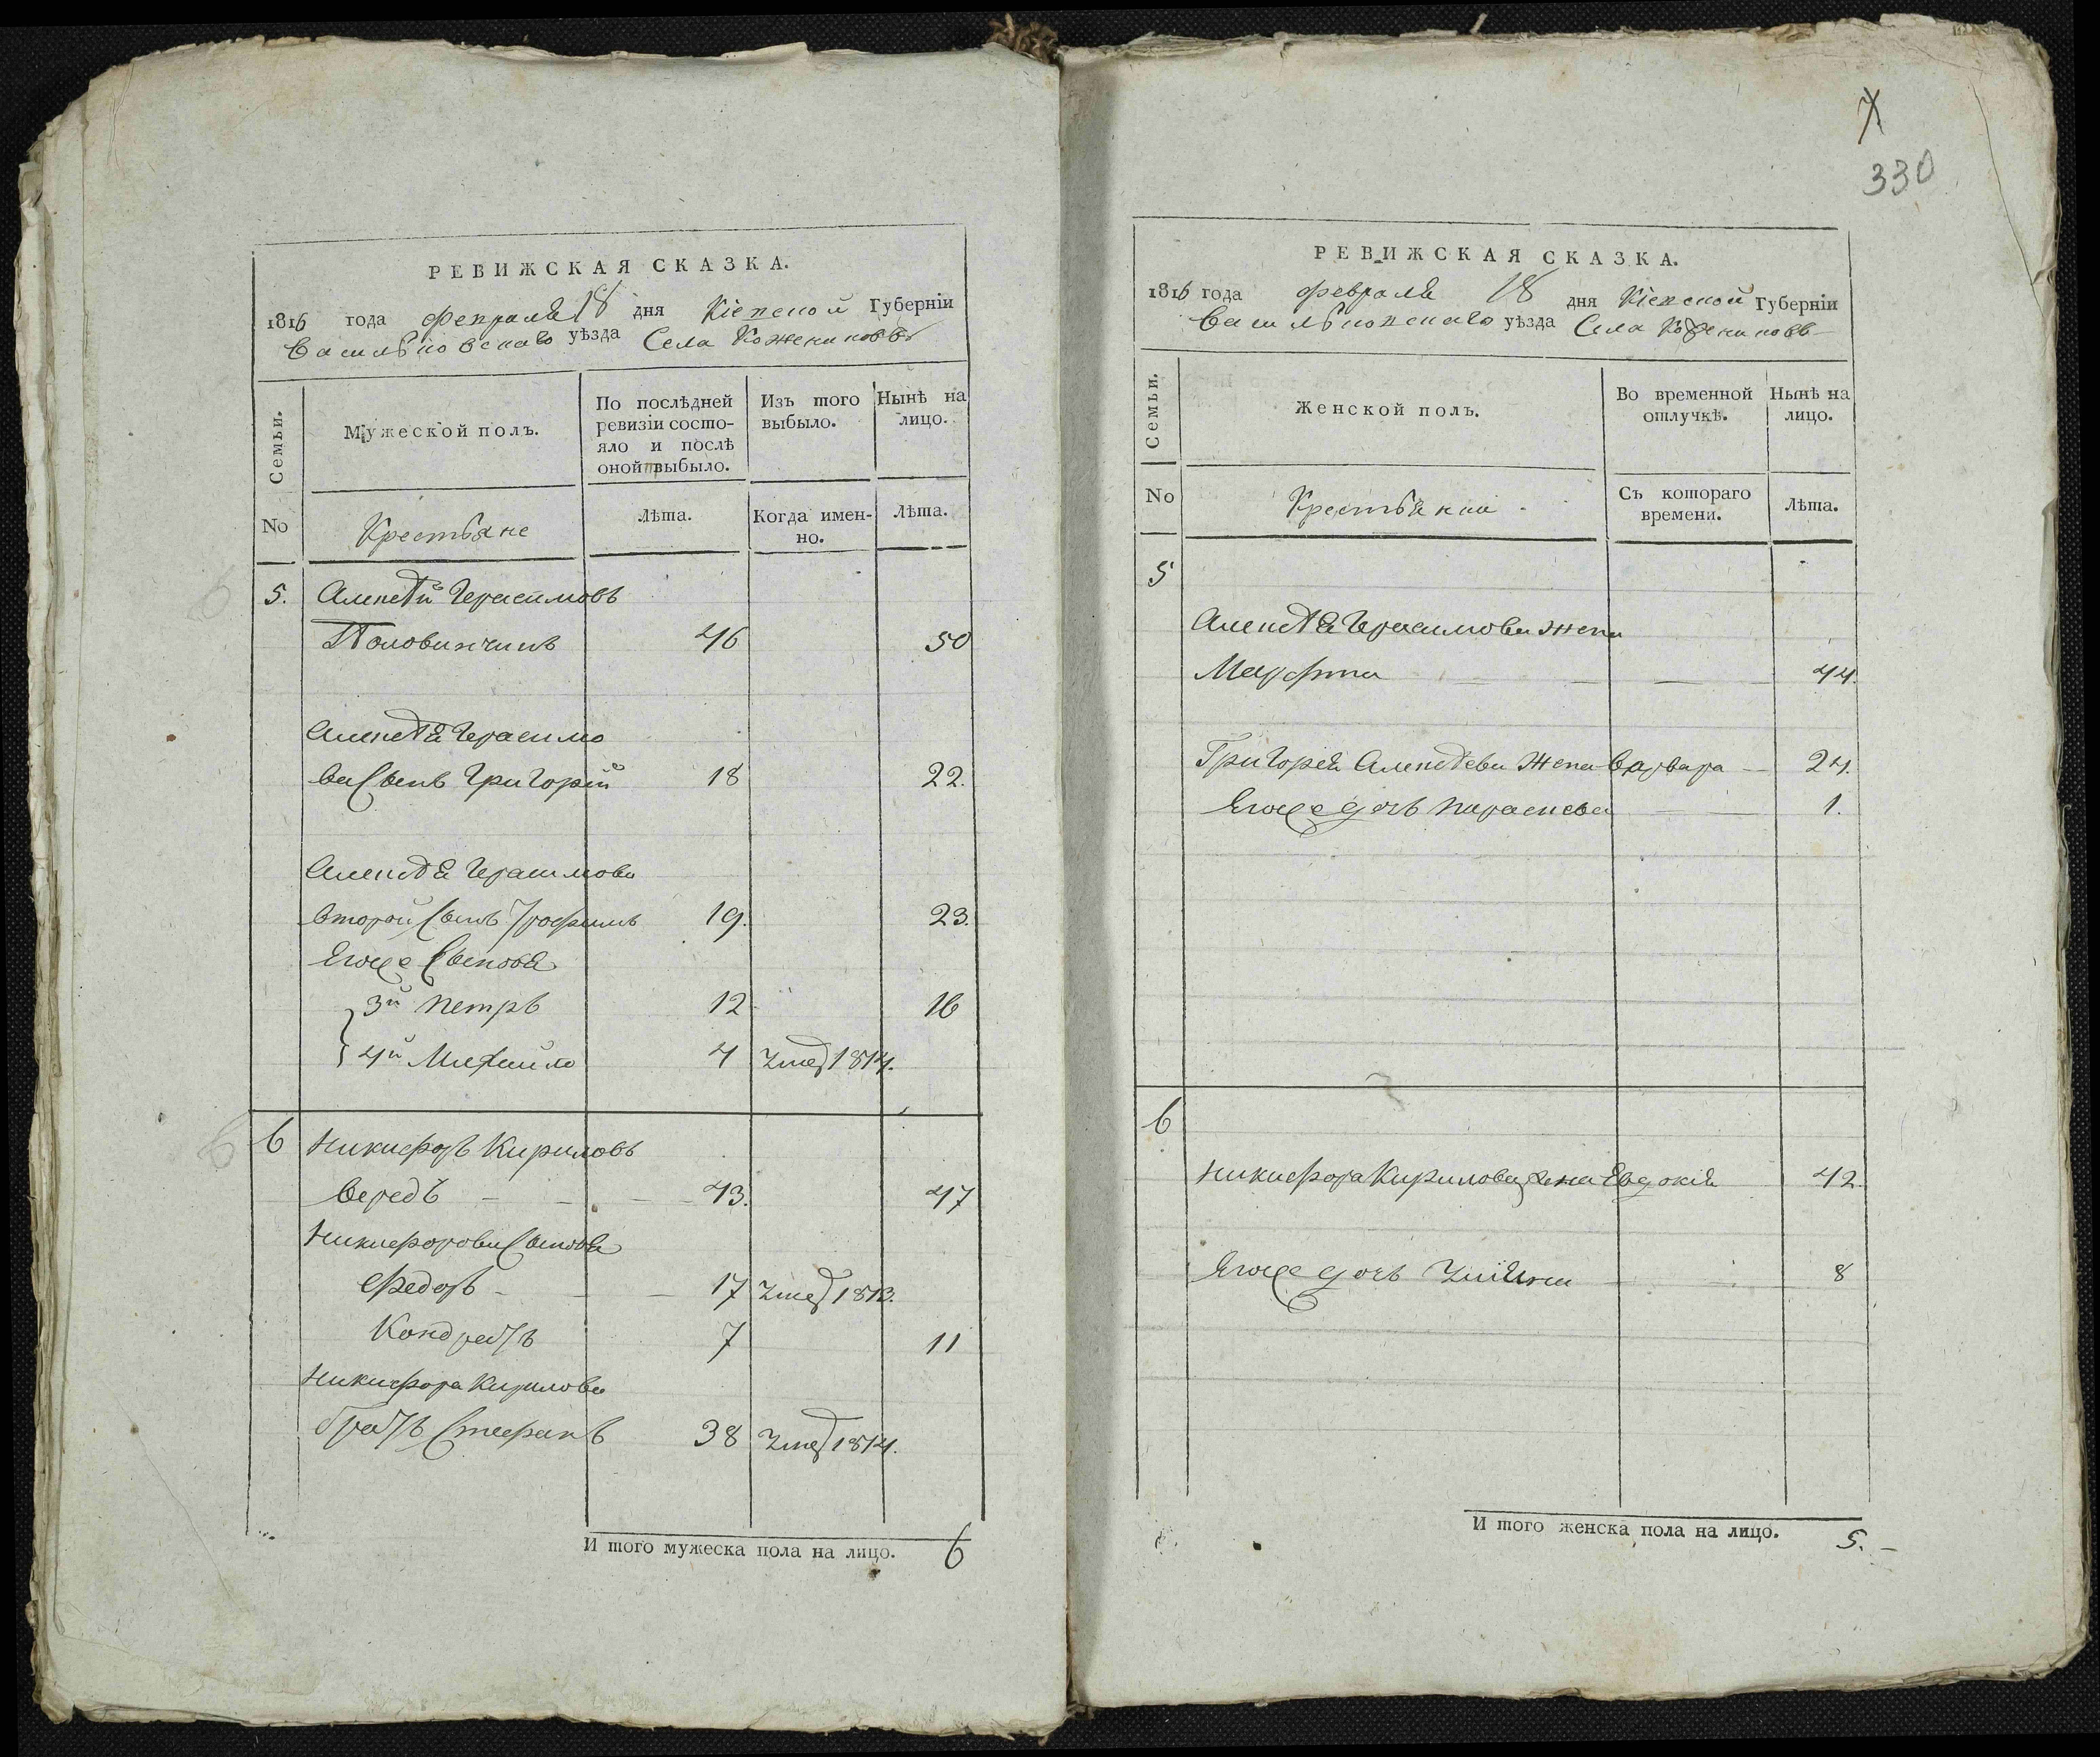 РЕВИЖСКАЯ СКАЗКА.
1816 года февраля 18 дня Кіевской Губерніи
Васильковскаго уѣзда Села Кожениковъ
Семьи.
Мужеской полъ.
По послѣдней ревизіи состо-
яло и послѣ
оной выбыло.
Изъ того
выбыло.
Нынѣ на
лицо.
No
Крестьяне
Лѣта.
Когда имен-
но.
Лѣта.
5. Алексѣй Герасимовъ
Половинчикъ 46 50
Алексѣя Герасимо
ва Сынъ Григорій 18 22.
Алексѣя Герасимова
второй Сынъ Трофимъ 19. 23.
Егоже Сыновя
3й Петръ 12 16
4й Михайло 4 умер 1814.
6 Никифоръ Кириловъ
Вередъ 43. 47
Никифорова Сыновя
Федоръ 17 умер 1813.
Кондратъ 7 11
Никифора Кирилова
братъ Стефанъ 38 умер 1814.
И того мужеска пола на лицо. 6
7
330
РЕВИЖСКАЯ СКАЗКА.
1816 года февраля 18 дня Кіевской Губерніи
Васильковскаго уѣзда Села Кожениковъ
Семьи.
Женской полъ.
Во временной
отлучкѣ.
Нынѣ на
лицо.
No
Крестьянки
Съ котораго
времени.
Лѣта.
5
Алексѣя Герасимова жена
Марфта 44.
Григорія Алексѣева жена Варвара 24.
Егоже дочь Параскева 1.
6
Никифора Кирилова жена Евдокія 42.
Егоже дочь Уліяна 8
И того женска пола на лицо. 5.